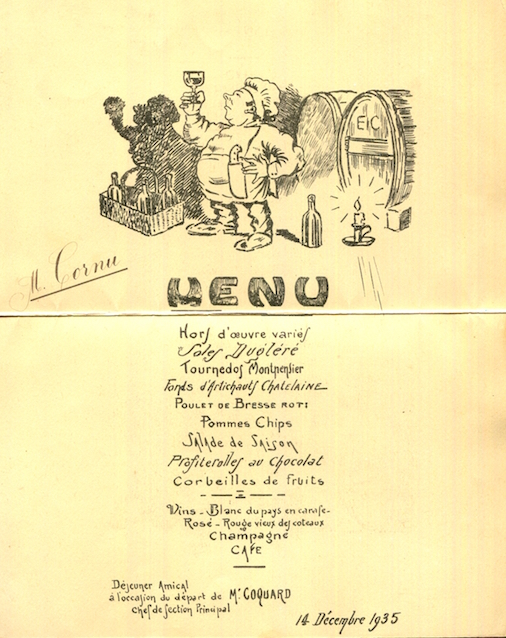 EC
M. Cornu
MENU
Hors d'œuvre variés
Soles Dugléré
Tournedos Montpensier
Fonds d'Artichauts Chatelaine
Poulet de Bresse roti
Pommes Chips
Salade de Saison
Profiterolles au Chocolat
Corbeilles de fruits
Vins - Blanc du pays en carafe -
Rosé - Rouge vieux des coteaux
Champagne
CAFE
Déjeuner Amical
à l'occasion du départ de Mr COQUARD
chef de section Principal
14 Décembre 1935